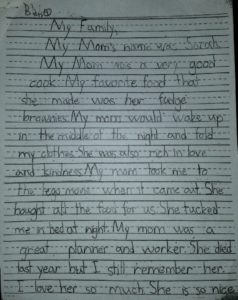 My Family,
My Mom's name was Sarah.
My Mom was a very good
cook. My favorite food that
she made was her fudge
brownies. My mom would wake up
in the middle of the night and fold
my clothes. She was also rich in love
and kindness. My mom took me to
the lego movie when it came out. She
bought all the food for us. She tucked
me in bed at night. My mom was a
great planner and worker. She died
last year but I still remember her.
I love her so much. She is so nice